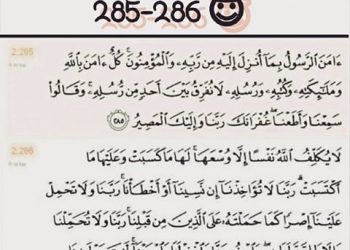 285-286
2:285
ءَامَنَ ٱلرَّسُولُ بِمَآ أُنزِلَ إِلَيْهِ مِن رَّبِّهِۦ وَٱلْمُؤْمِنُونَ ۚ كُلٌّ ءَامَنَ بِٱللَّهِ
وَمَلَٰٓئِكَتِهِۦ وَكُتُبِهِۦ وَرُسُلِهِۦ لَا نُفَرِّقُ بَيْنَ أَحَدٍ مِّن رُّسُلِهِۦ ۚ وَقَالُوا۟
سَمِعْنَا وَأَطَعْنَا ۖ غُفْرَانَكَ رَبَّنَا وَإِلَيْكَ ٱلْمَصِيرُ ٢٨٥
2:286
لَا يُكَلِّفُ ٱللَّهُ نَفْسًا إِلَّا وُسْعَهَا ۚ لَهَا مَا كَسَبَتْ وَعَلَيْهَا مَا
ٱكْتَسَبَتْ ۗ رَبَّنَا لَا تُؤَاخِذْنَآ إِن نَّسِينَآ أَوْ أَخْطَأْنَا ۚ رَبَّنَا وَلَا تَحْمِلْ
عَلَيْنَآ إِصْرًا كَمَا حَمَلْتَهُۥ عَلَى ٱلَّذِينَ مِن قَبْلِنَا ۚ رَبَّنَا وَلَا تُحَمِّلْنَا